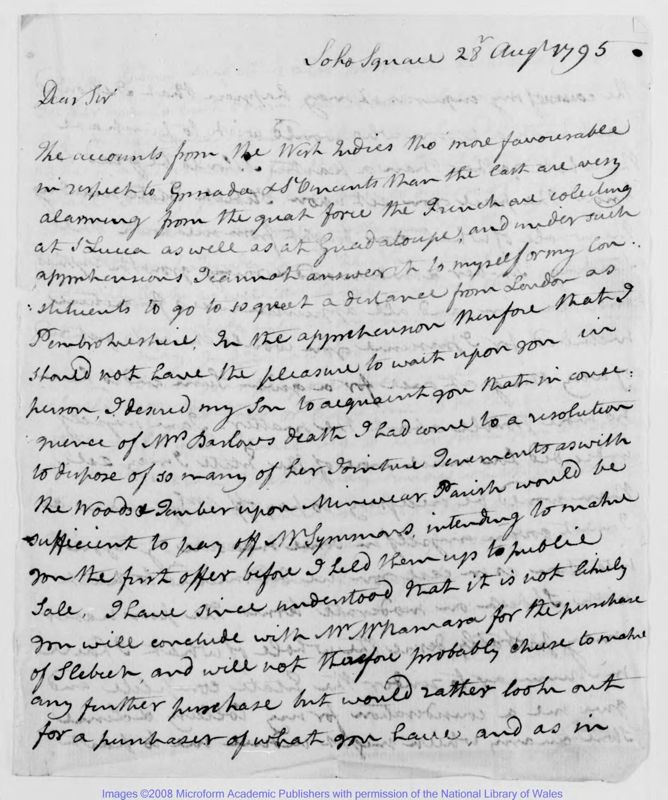 Soho Square 28r Augt 1795
Dear Sir
The accounts from the West Indies tho more favourable
in respect to Grenada & St Vincents than the last are very
alarming from the great force the French are colecting
at S Lucca as well as at Guadaloupe, and under such
apprehensions I cannot answer it to myself or my Con:
:stituents to go to so great a distance from London as
Pembrokeshire. In the apprehension therefore that I
should not have the pleasure to wait upon you in
person, I desired my Son to acquaint you that in conse:
quence of Mrs Barlows death I had come to a resolution
to dispose of so many of her Jointure Tenements as with
the Woods & Timber upon Minwear Parish would be
sufficient to pay off Mr Symmons, intending to make
you the first offer before I held them up to public
Sale. I have since understood that it is not likely
you will conclude with Mr McNamara for the purchase
of Slebech, and will not therefore probably chuse to make
any further purchase but would rather look out
for a purchaser of what you have, and as in
Images ©2008 Microform Academic Publishers with permission of the National Library of Wales